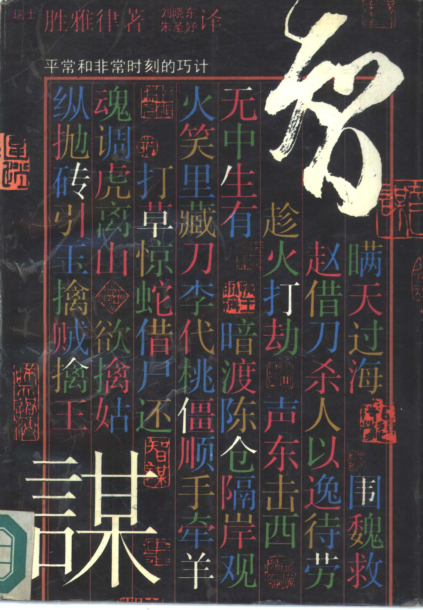 瑞士 胜雅律著 刘晓东 译
平常和非常时刻的巧计
智
謀
瞒天过海 围魏救
赵借刀杀人以逸待劳
趁火打劫 声东击西
无中生有 暗渡陈仓隔岸观
火笑里藏刀李代桃僵顺手牵羊
打草惊蛇借尸还
魂调虎离山 欲擒姑
纵抛砖引玉擒贼擒王
智謀